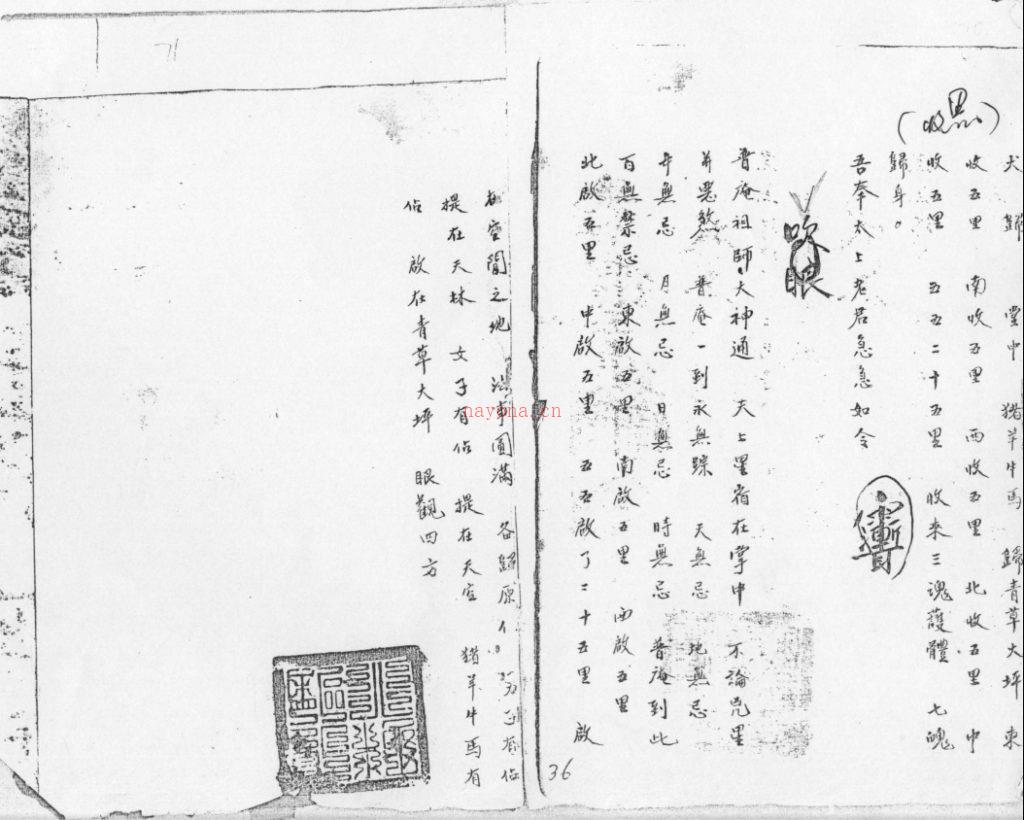 犬歸 堂中 猪羊牛馬 歸青草大坪 東
收五里 南收五里 西收五里 北收五里 中
收五里 五五二十五里 收来三魂護體 七魄
歸身。
吾奉太上老君急急如令
眼
普庵祖師大神通 天上星宿在掌中 不論兇星
并惡煞 普庵一到永無踪 天無忌 地無忌
年無忌 月無忌 日無忌 時無忌 普庵到此
百無禁忌 東啟五里 南啟五里 西啟五里
北啟五里 中啟五里 五五啟了二十五里 啟
在空間之地 法事圓滿 各歸原位。男子有佔
提在天林 女子有佔 提在天空 猪羊牛馬有
佔 啟在青草大坪 眼觀四方
36
71
nayona.cn